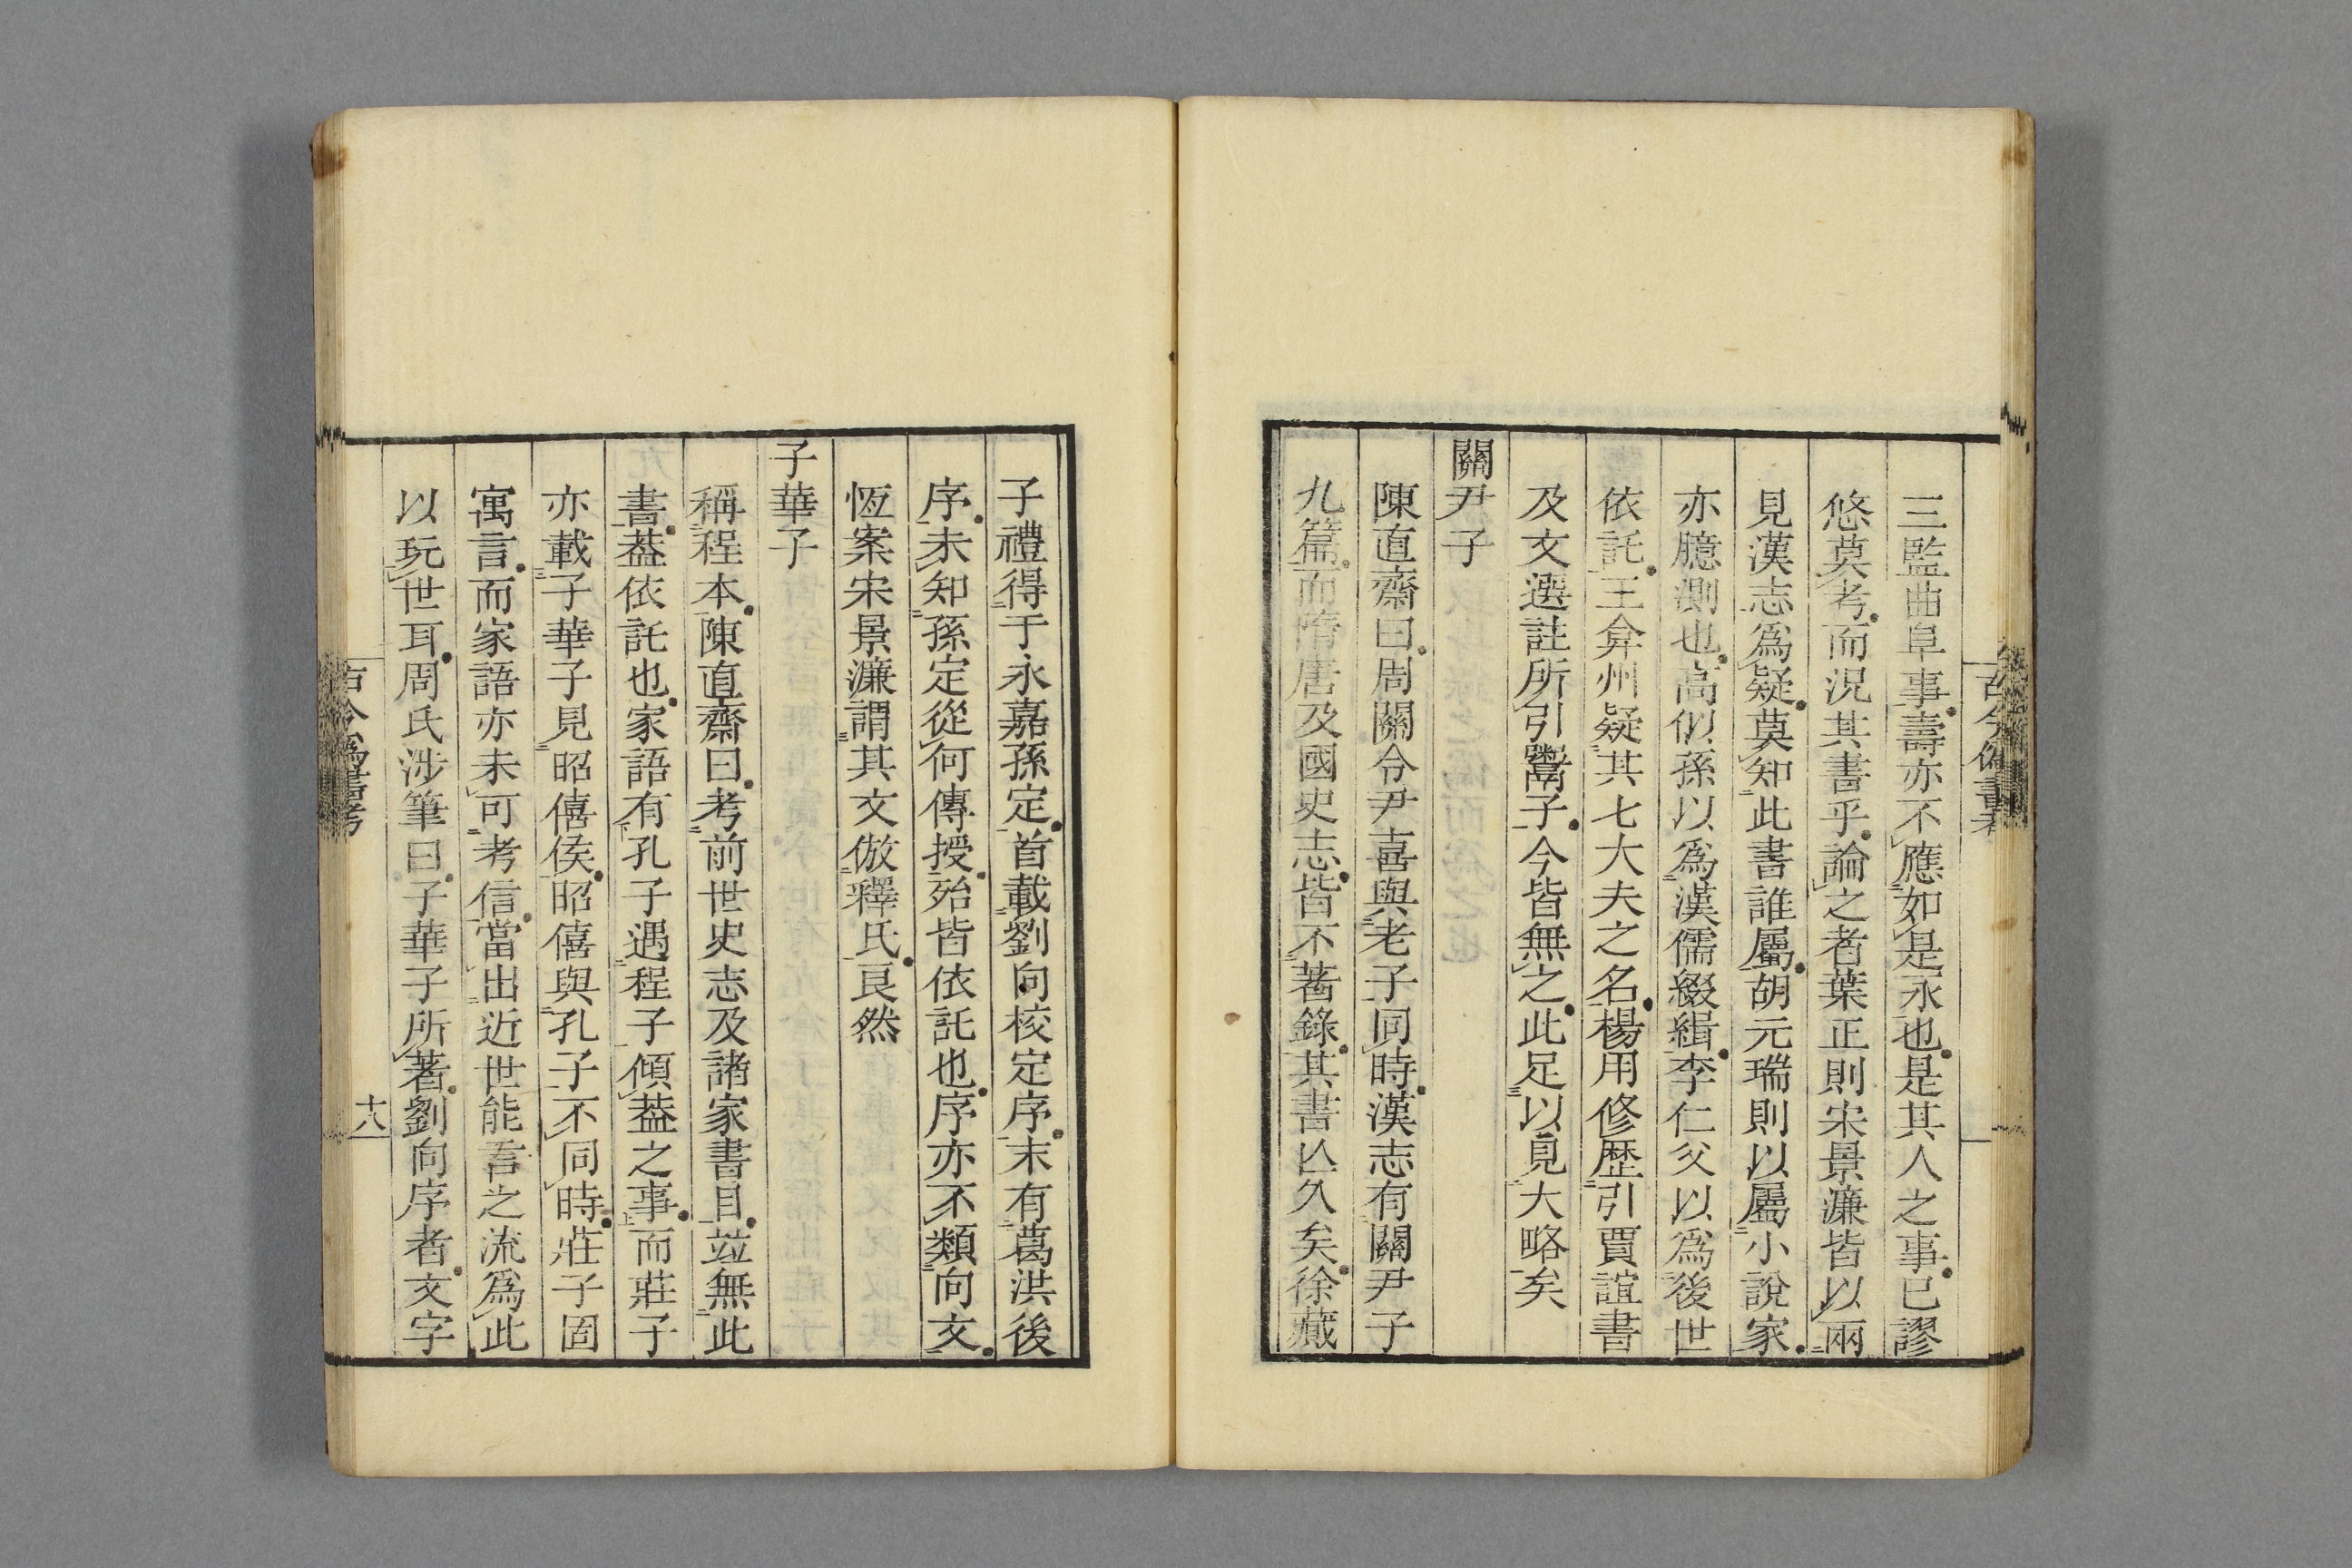 三監曲阜事壽亦不應如是永也是其人之事已謬
悠莫考而況其書乎論之者葉正則宋景濂皆以兩
見漢志爲疑莫知此書誰屬胡元瑞則以屬小說家
亦臆測也高似孫以爲漢儒綴緝李仁父以爲後世
依託王弇州疑其七大夫之名楊用修歷引賈誼書
及文選註所引鬻子今皆無之此足以見大略矣
關尹子
陳直齋曰周關令尹喜與老子同時漢志有關尹子
九篇而隋唐及國史志皆不著錄其書亾久矣徐藏
古今僞書考
子禮得于永嘉孫定首載劉向校定序末有葛洪後
序未知孫定從何傳授殆皆依託也序亦不類向文
恆案宋景濂謂其文倣釋氏良然
子華子
稱程本陳直齋曰考前世史志及諸家書目竝無此
書葢依託也家語有孔子遇程子傾葢之事而莊子
亦載子華子見昭僖侯昭僖與孔子不同時莊子固
寓言而家語亦未可考信當出近世能言之流爲此
以玩世耳周氏涉筆曰子華子所著劉向序者文字
古今僞書考
十八